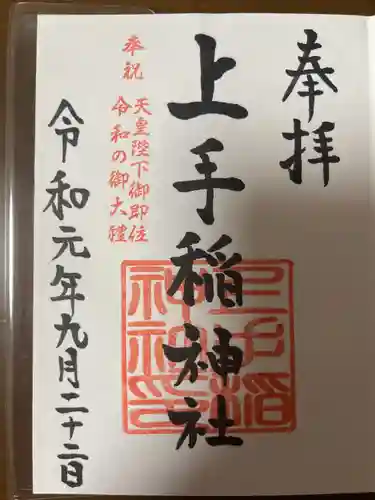 奉拝
上手稲神社
奉祝
天皇陛下御即位
令和の御大禮
令和元年九月二十二日
上手稲
神社印